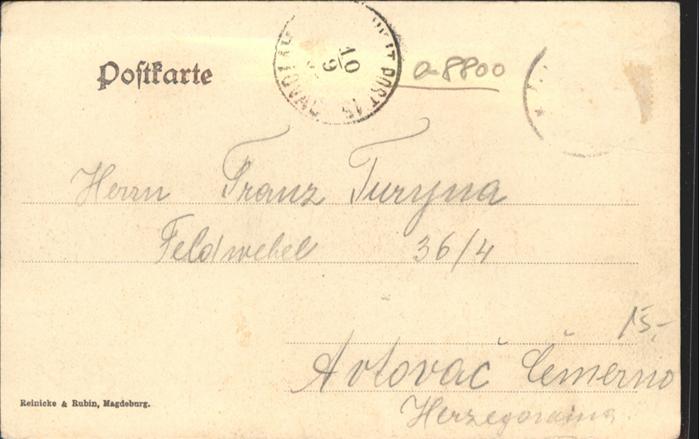 Postkarte
10
9
POST 15
a-8800
Herrn Franz Turyna
Feldwebel 36/4
15,-
Avtovač Čemerno
Herzegowina
Reinicke & Rubin, Magdeburg.